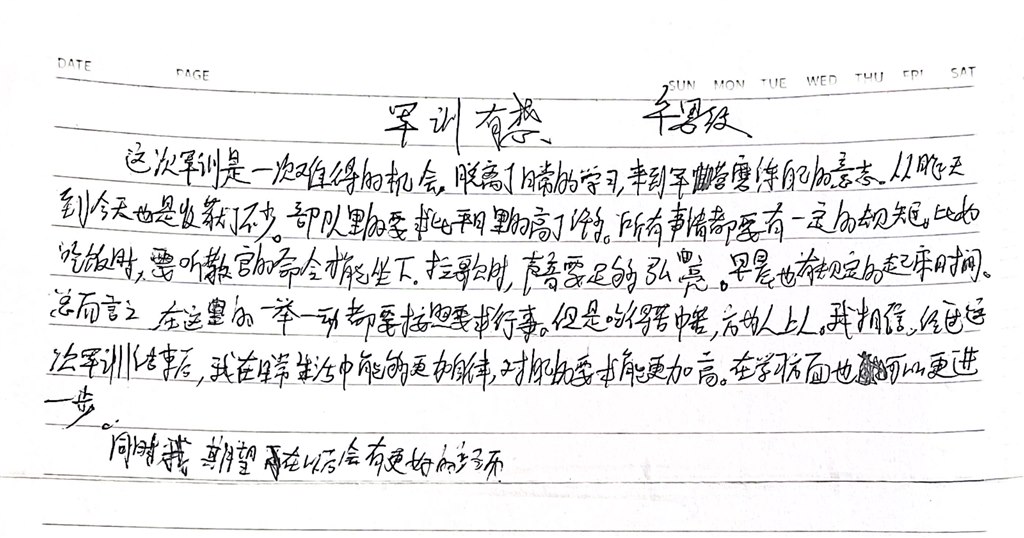 DATE PAGE SUN MON TUE WED THU FRI SAT
军训有感
这次军训是一次难得的机会。脱离了日常的学习,来到军营磨练自己的意志。从昨天
到今天也是发获了不少。部队里的要求比平日里的高了许多。所有事情都要有一定的规矩。比如
吃饭时,要听教官的命令才能坐下.拉歌时,声音要足够弘亮。早晨也有规定的起床时间。
总而言之 在这里的一举一动都要按照要求行事。但是吃得苦中苦,方为人上人。我相信,经过这
次军训结束后,我在日常生活中能够更加自律,对自己的要求能更加高。在学习方面也可以更进
一步。
同时我期望在以后会有更好的经历